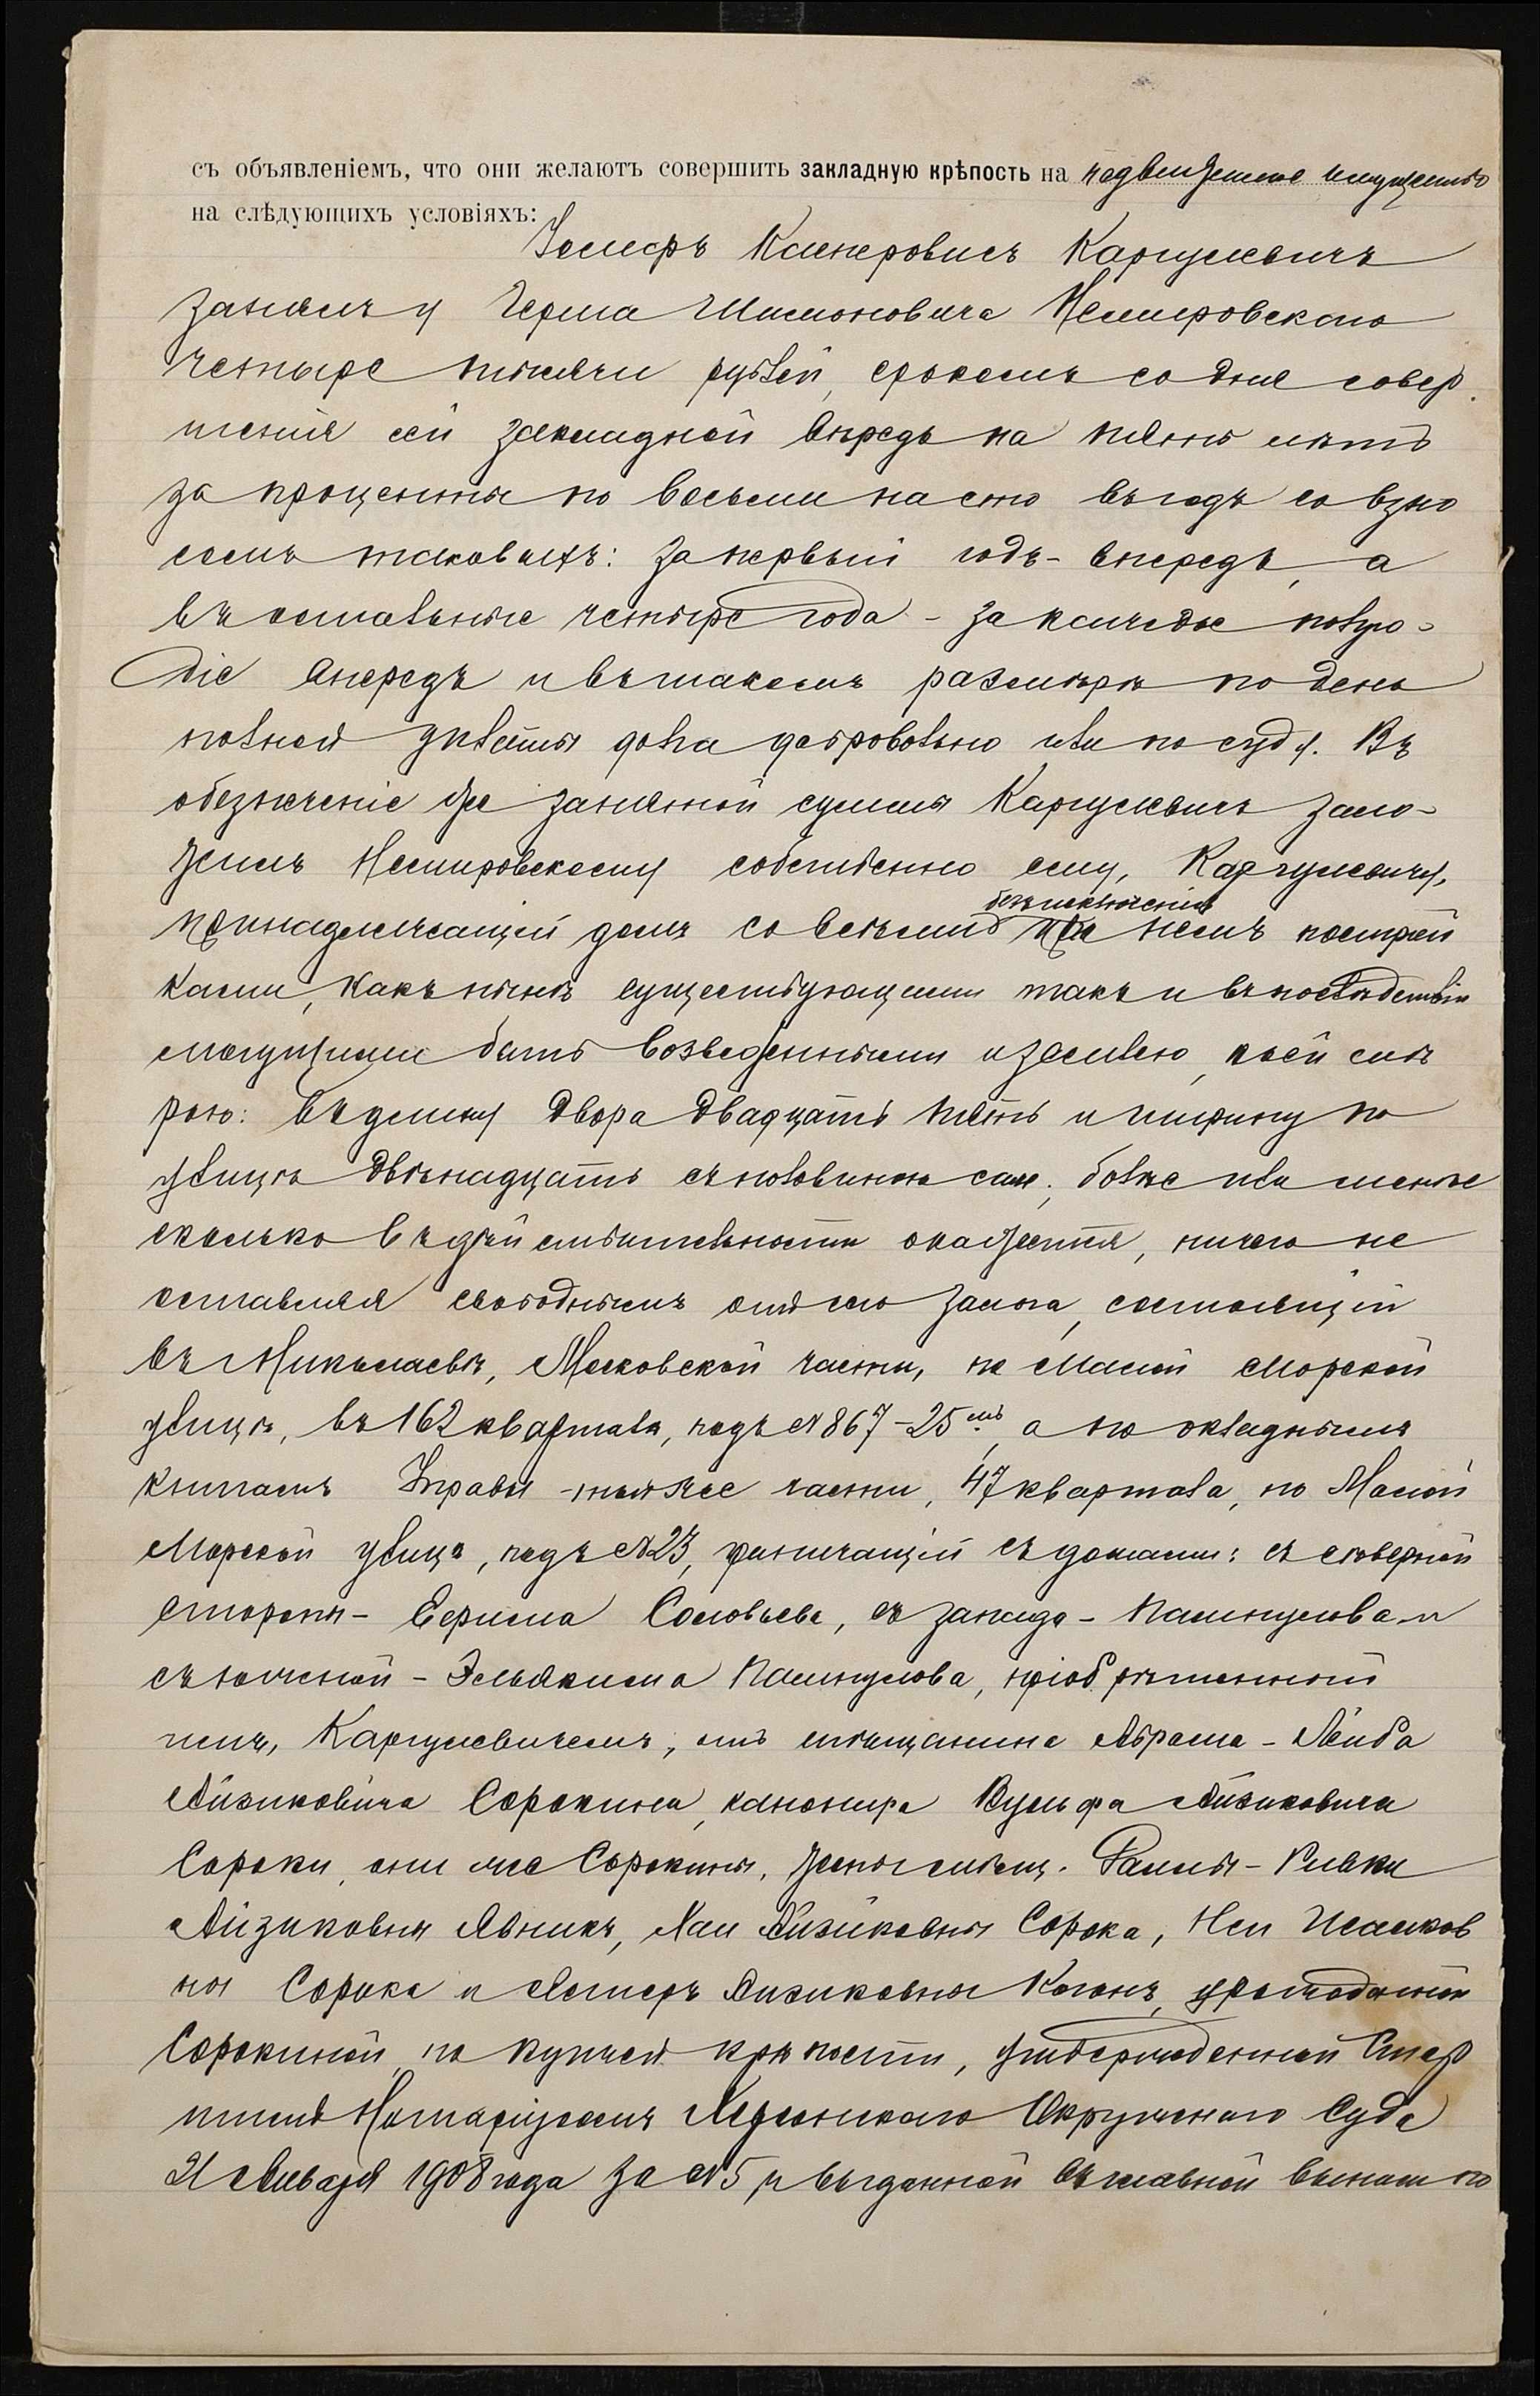 съ объявленіемъ, что они желаютъ совершить закладную крѣпость на недвижимое имущество
на слѣдующихъ условіяхъ:
Іосифъ Касперовичъ Каргулевичъ
занялъ у Герша Шимоновича Немировскаго
четыре тысячи рублей, срокомъ со дня совер
шенія сей закладной впредь на пять лѣтъ
за проценты по восьми на сто въ годъ со взно
сомъ таковыхъ: за первый годъ - впередъ, а
въ остальные четыре года - за каждое полуго-
діе впередъ и въ такомъ размѣрѣ по день
полной уплаты долга добровольно или по суду. Въ
обезпеченіе же занятой суммы Каргулевичъ зало-
жилъ Немировскому собственно ему, Каргулевичу,
принадлежащій домъ со всѣми безъ исключенія при немъ построй
ками, какъ нынѣ существующими такъ и впослѣдствіи
могущими быть возведенными и землею, коей мѣ
рою: въ длину двора двадцать пять и ширину по
улицѣ двѣнадцать съ половиною саж., болѣе или менѣе
сколько въ дѣйствительности окажется, ничего не
оставляя свободнымъ отъ сего залога, состоящій
въ г. Николаевѣ, Московской части, по Малой Морской
улицѣ, въ 162 кварталѣ, подъ № 867-25мъ, а по окладнымъ
книгамъ Управы - той же части, 47 квартала, по Малой
Морской улицѣ, подъ № 23, граничащій съ домами: съ сѣверной
стороны - Ефима Соловьева, съ запада - Пампулова и
съ южной - Эльякима Пампулова, пріобрѣтенный
имъ, Каргулевичемъ, отъ мѣщанина Абрама-Лейба
Айзиковича Сорокина, канонира Вульфа Айзиковича
Сороки, они же Сорокины, жены мѣщ. Рамы-Ривки
Айзиковны Явникъ, Хаи Айзиковны Сорока, Неи Исааков
ны Сорока и Эстеръ Айзиковны Коганъ, урожденной
Сорокиной, по купчей крѣпости, утвержденной Стар
шимъ Нотаріусомъ Херсонскаго Окружнаго Суда
21 Января 1908 года за № 5, и выданной въ главной выписи по